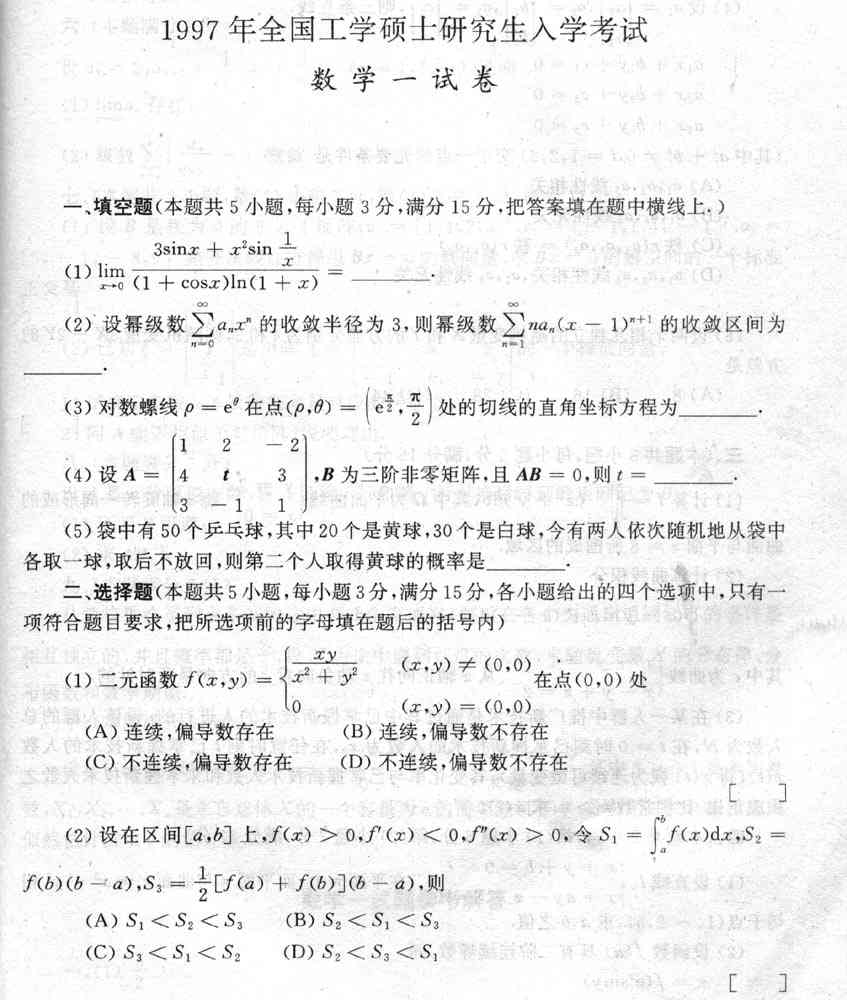 1997 年全国工学硕士研究生入学考试
数 学 一 试 卷
一、填空题(本题共 5 小题,每小题 3 分,满分 15 分,把答案填在题中横线上.)
(1) $\lim\limits_{x\to 0}\dfrac{3\sin x + x^2\sin\dfrac{1}{x}}{(1+\cos x)\ln(1+x)}$ = ________.
(2) 设幂级数 $\sum\limits_{n=0}^{\infty}a_nx^n$ 的收敛半径为 3,则幂级数 $\sum\limits_{n=1}^{\infty}na_n(x-1)^{n+1}$ 的收敛区间为
________.
(3) 对数螺线 $\rho = e^{\theta}$ 在点$(\rho,\theta) = \left(e^{\frac{\pi}{2}},\dfrac{\pi}{2}\right)$ 处的切线的直角坐标方程为________.
(4) 设 $A = \begin{bmatrix}1 & 2 & -2\\4 & t & 3\\3 & -1 & 1\end{bmatrix}$,$B$ 为三阶非零矩阵,且 $AB = 0$,则 $t$ = ________.
(5) 袋中有 50 个乒乓球,其中 20 个是黄球,30 个是白球,今有两人依次随机地从袋中
各取一球,取后不放回,则第二个人取得黄球的概率是________.
二、选择题(本题共 5 小题,每小题 3 分,满分 15 分,各小题给出的四个选项中,只有一
项符合题目要求,把所选项前的字母填在题后的括号内)
(1) 二元函数 $f(x,y) = \begin{cases}\dfrac{xy}{x^2+y^2} & (x,y)\neq(0,0)\\0 & (x,y)=(0,0)\end{cases}$ 在点(0,0) 处
(A) 连续,偏导数存在 (B) 连续,偏导数不存在
(C) 不连续,偏导数存在 (D) 不连续,偏导数不存在
[ ]
(2) 设在区间$[a,b]$ 上,$f(x) > 0, f'(x) < 0, f''(x) > 0$,令 $S_1 = \int_a^b f(x)dx, S_2 =$
$f(b)(b-a), S_3 = \dfrac{1}{2}[f(a)+f(b)](b-a)$,则
(A) $S_1 < S_2 < S_3$ (B) $S_2 < S_1 < S_3$
(C) $S_3 < S_1 < S_2$ (D) $S_2 < S_3 < S_1$
[ ]